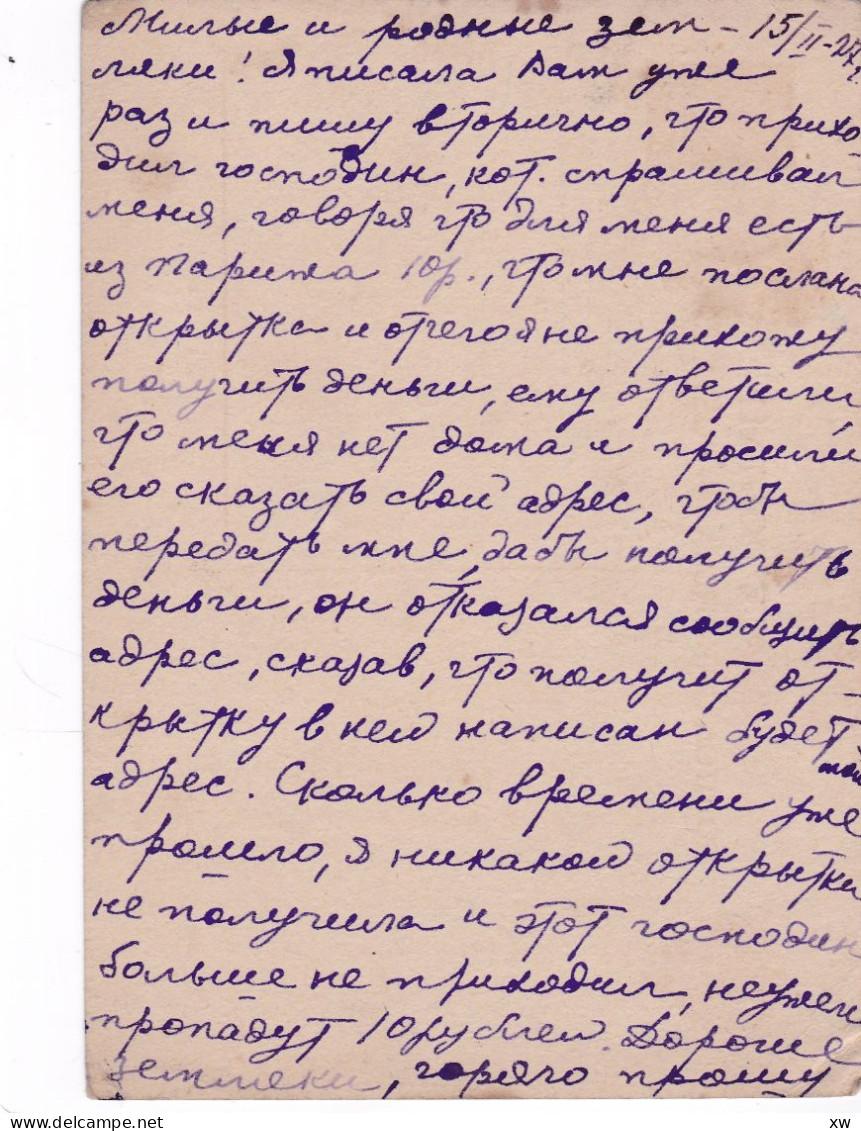 Милые и родные зем- 15/II-27г.
ляки! Я писала Вам уже
раз и пишу вторично, что прихо
дил господин, кот. спрашивал
меня, говоря что для меня есть
из Парижа 10р., что мне послана
открытка и отчего я не прихожу
получить деньги, ему ответили
что меня нет дома и просили
его сказать свой адрес, чтобы
передать мне, дабы получить
деньги, он отказался сообщить
адрес, сказав, что получит от-
крытку в ней написан будет
мой
адрес. Сколько времени уже
прошло, я никакой открытки
не получила и этот господин
больше не приходил, неужели
пропадут 10 рублей. Дорогие
земляки, горячо прошу
xw